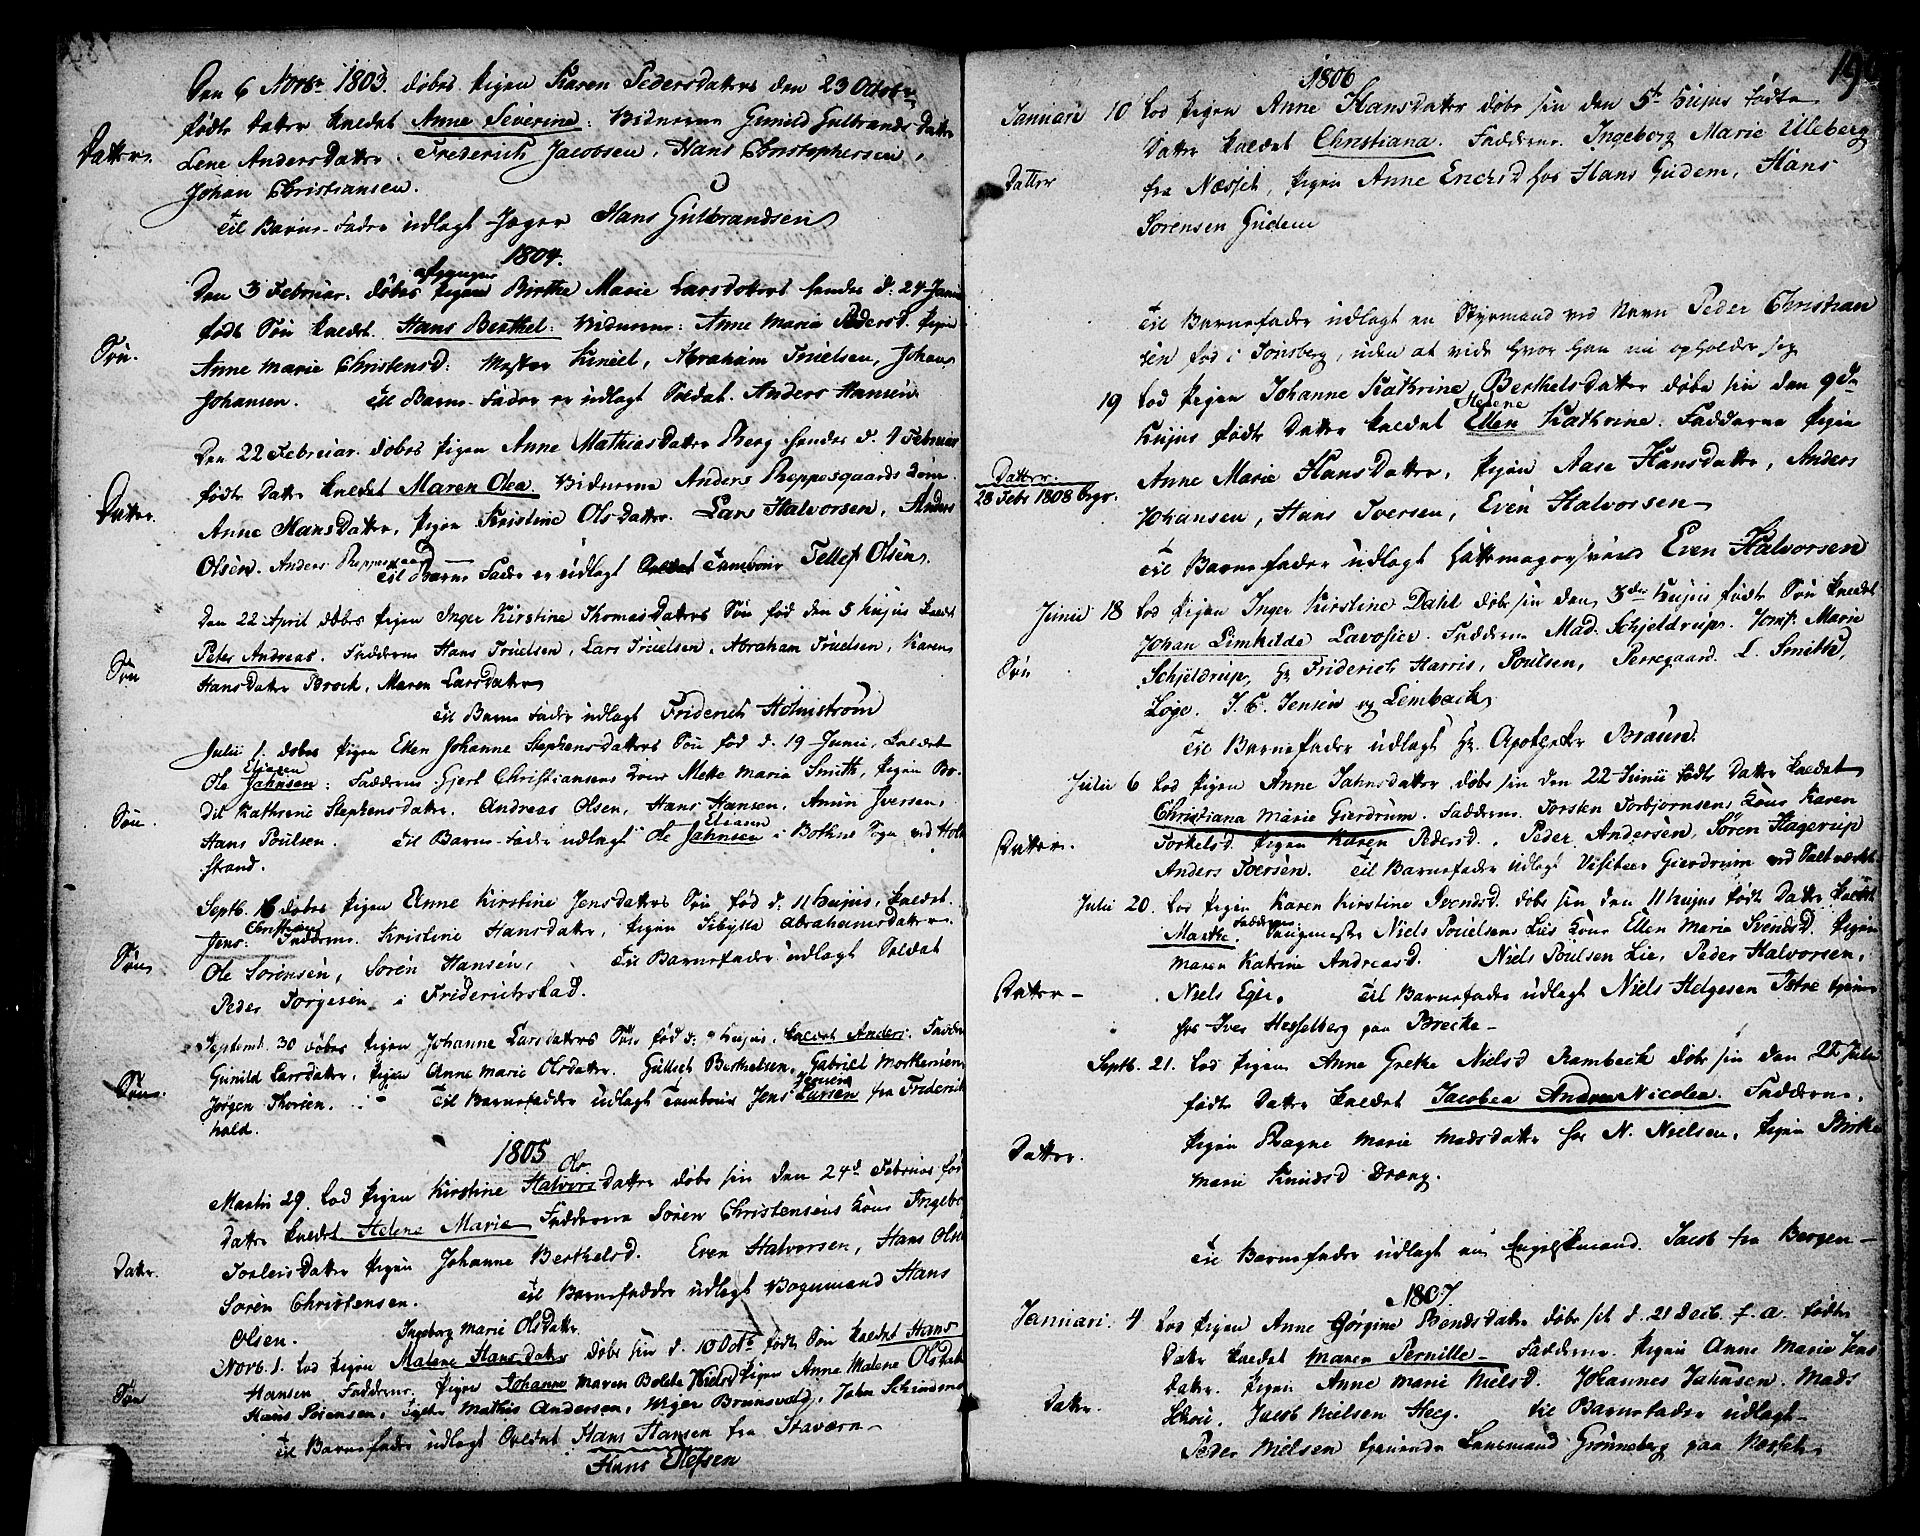 Den 6 Novbr 1803. døbes Pigen Karen Pedersdatters den 23 Octobr
fødte Datter kaldet Anne Severine. Vidnerne Gunild Gulbrands Datter
Datter.
Lene AndersDatter. Frederich Jacobsen, Hans Christophersen,
Johan Christiansen.
Til Barne-Fader udlagt Jæger Hans Gulbrandsen
1804.
Den 3 Februar. døbes Pigen Birthe Marie Larsdatters hendes d. 24 Janu
fødte Søn kaldet. Hans Berthel: Vidnerne: Anne Marie Pedersd. Pigen
Søn.
Anne Marie Christensd: Mester Kniel, Abraham Truelsen, Johan
Johansen. Til Barne-Fader er udlagt Soldat. Anders Hansen
Den 22 Februar. døbes Pigen Anne MathiasDatter Berg hendes d. 1 Februar
fødte Datter kaldet Maren Olea. Vidnerne Anders Reppesgaards Kone
Datter.
Anne HansDatter, Pigen Kristine OlsDatter. Lars Halvorsen, Anders
Olsen. Anders Reppesgaard
Til Barne Fader er udlagt Soldat Tambour Tellef Olsen.
Den 22 April døbes Pigen Inger Kirstine Thomasdatters Søn fød den 5 hujus kaldet
Peter Andreas. Fadderne Hans Truelsen, Lars Truelsen, Abraham Truelsen, Karen
Søn
HansDatter Brock, Maren Larsdatter
Til Barne Fader udlagt Friderich Holmstrøm
Julii 1. døbes Pigen Ellen Johanne Stephensdatters Søn fød d. 19 Junii, kaldet
Eliasen
Ole Jahnsen: Fadderne Gjert Christiansens Kone Mette Maria Smith, Pigen Bo-
Søn.
dil Kathrine Stephensdatter. Andreas Olsen, Hans Hansen, Amun Iversen,
Eliasen
Hans Poulsen. Til Barne-Fader udlagt Ole Jahnsen i Bothne Sogn ved Holm
strand.
Septb. 16 døbes Pigen Anne Kirstine Jensdatters Søn fød d: 11 hujus, kaldet.
Christian
Jens: Fadderne. Kristine Hansdatter, Pigen Sibylla Abrahamsdatter.
Søn
Ole Sørensen, Søren Hansen, Til Barnefader udlagt Soldat
Peder Torgesen i Friderichstad.
Septemb. 30 døbes Pigen Johanne Larsdatters Søn fød d: 9 hujus, kaldet Anders. Fadder
Gunild Larsdatter, Pigen Anne Marie Olsdatter. Gullich Berthelsen, Gabriel Mortensen
Søn.
Jørgen Thorsen. Til Barnefadder udlagt Tambour Jens Larsen fra Friderik
hald.
1805
Ols
Martii 29. Lod Pigen Kirstine HalvorsDatter døbe sin den 24d Februar fød
Datter kaldet Helene Marie Fadderne Søren Christensens Kone Ingebor
Datter.
ToolersDatter Pigen Johanne Berthelsd. Even Halvorsen, Hans Olsen
Søren Christensen. Til Barnefader udlagt Bogsmand Hans
Olsen.
Ingeborg Marie Olsdatter
Novb. 1. Lod Pigen Malene Hansdatter døbe sin d. 10 Octb fødte Søn kaldet Hans
Søn
Hansen Fadderne. Pigen Johanne Maren Bolette Nielsd Pigen Anne Malene Olsdatter
Hans Sørensen, Mathis Andersen, Niger Brunsvold, John Schinder
Til Barnefader udlagt Soldat Hans Hansen fra Stavern
Hans Ellefsen
190
1806
Januari 10 Lod Pigen Anne Hansdatter døbe sin den 5te hujus fødte
Datter kaldet Christiana. Fadderne. Ingeborg Marie Uleberg
Datter
fra Næsset, Pigen Anne Ericksd hos Hans Gudem, Hans
Sørensen Gudem
Til Barnefader udlagt en Styrmand ved Navn Peder Christian
sen fød i Tønsberg, uden at vide hvor han nu opholder sig
19 Lod Pigen Johanne Kathrine BerthelsDatter døbe sin den 9de
Helene
hujus fødte Datter kaldet Ellen Kathrine. Fadderne Pigen
Datter.
28 Febr 1808 begr.
Anne Marie HansDatter, Pigen Aase HansDatter, Anders
Johansen, Hans Iversen, Even Halvorsen
Til Barnefader udlagt Hattemagersvend Even Halvorsen
Junii 18 Lod Pigen Inger Kirstine Dahl døbe sin den 3de hujus fødte Søn kaldet
Johan Limkilde Lavosier. Fadderne Mad. Schjeldrup. Jomf. Marie
Søn
Schjeldrup, Hr Friderich Harris, Poulsen, Perregaard. L. Smith,
Loge. J. C. Jensen og Lembach
Til Barnefader udlagt Hr. Apotheker Braun.
Julii 6 Lod Pigen Anne Jahnsdatter døbe sin den 22 Junii fødte Datter kaldet
Christiana Marie Gierdrum. Fadderne. Torsten Torbjørnsens Kone Karen
Datter.
Torkelsd. Pigen Karen Pedersd. Peder Andersen, Søren Hagerup
Anders Iversen. Til Barnefader udlagt Visiteur Gierdrum ved Saltværket.
Julii 20. Lod Pigen Karen Kirstine Svendsd. døbe sin den 11 hujus fødte Datter kaldet
Fadderne
Marthe. Saugmester Niels Poulsens Lies Kone Ellen Maria Svendsd. Pigen
Maren Katrine Andreasd. Niels Poulsen Lie, Peder Halvorsen,
Datter
Niels Eger. Til Barnefader udlagt Niels Helgesen Istre tjen
hos Iver Hesselberg paa Brecke
Septb. 21. Lod Pigen Anne Grethe Nielsd Rambech døbe sin den 27 Julii
fødte Datter kaldet Jacobea Andrea Nicolea. Fadderne.
Datter.
Pigen Ragne Marie Madsdatter hos N. Nielsen, Pigen Birthe
Marie Knudsd Drong.
Til Barnefader udlagt en Engelskmand. Jacob fra Bergen
1807
Januari. 4 Lod Pigen Anne Gørgine Bendsdatter døbe sit d. 21 Decb. f. a. fødte
Datter kaldet Maren Pernille. Fadderne. Pigen Anne Marie Jens
Datter.
Datter. Pigen Anne Marie Nielsd. Johannes Jahnsen. Mads
Schou. Jacob Nielsen Heeg. Til Barnefader udlagt
Peder Nielsen tjenende Lansmand Grønneberg paa Næsset